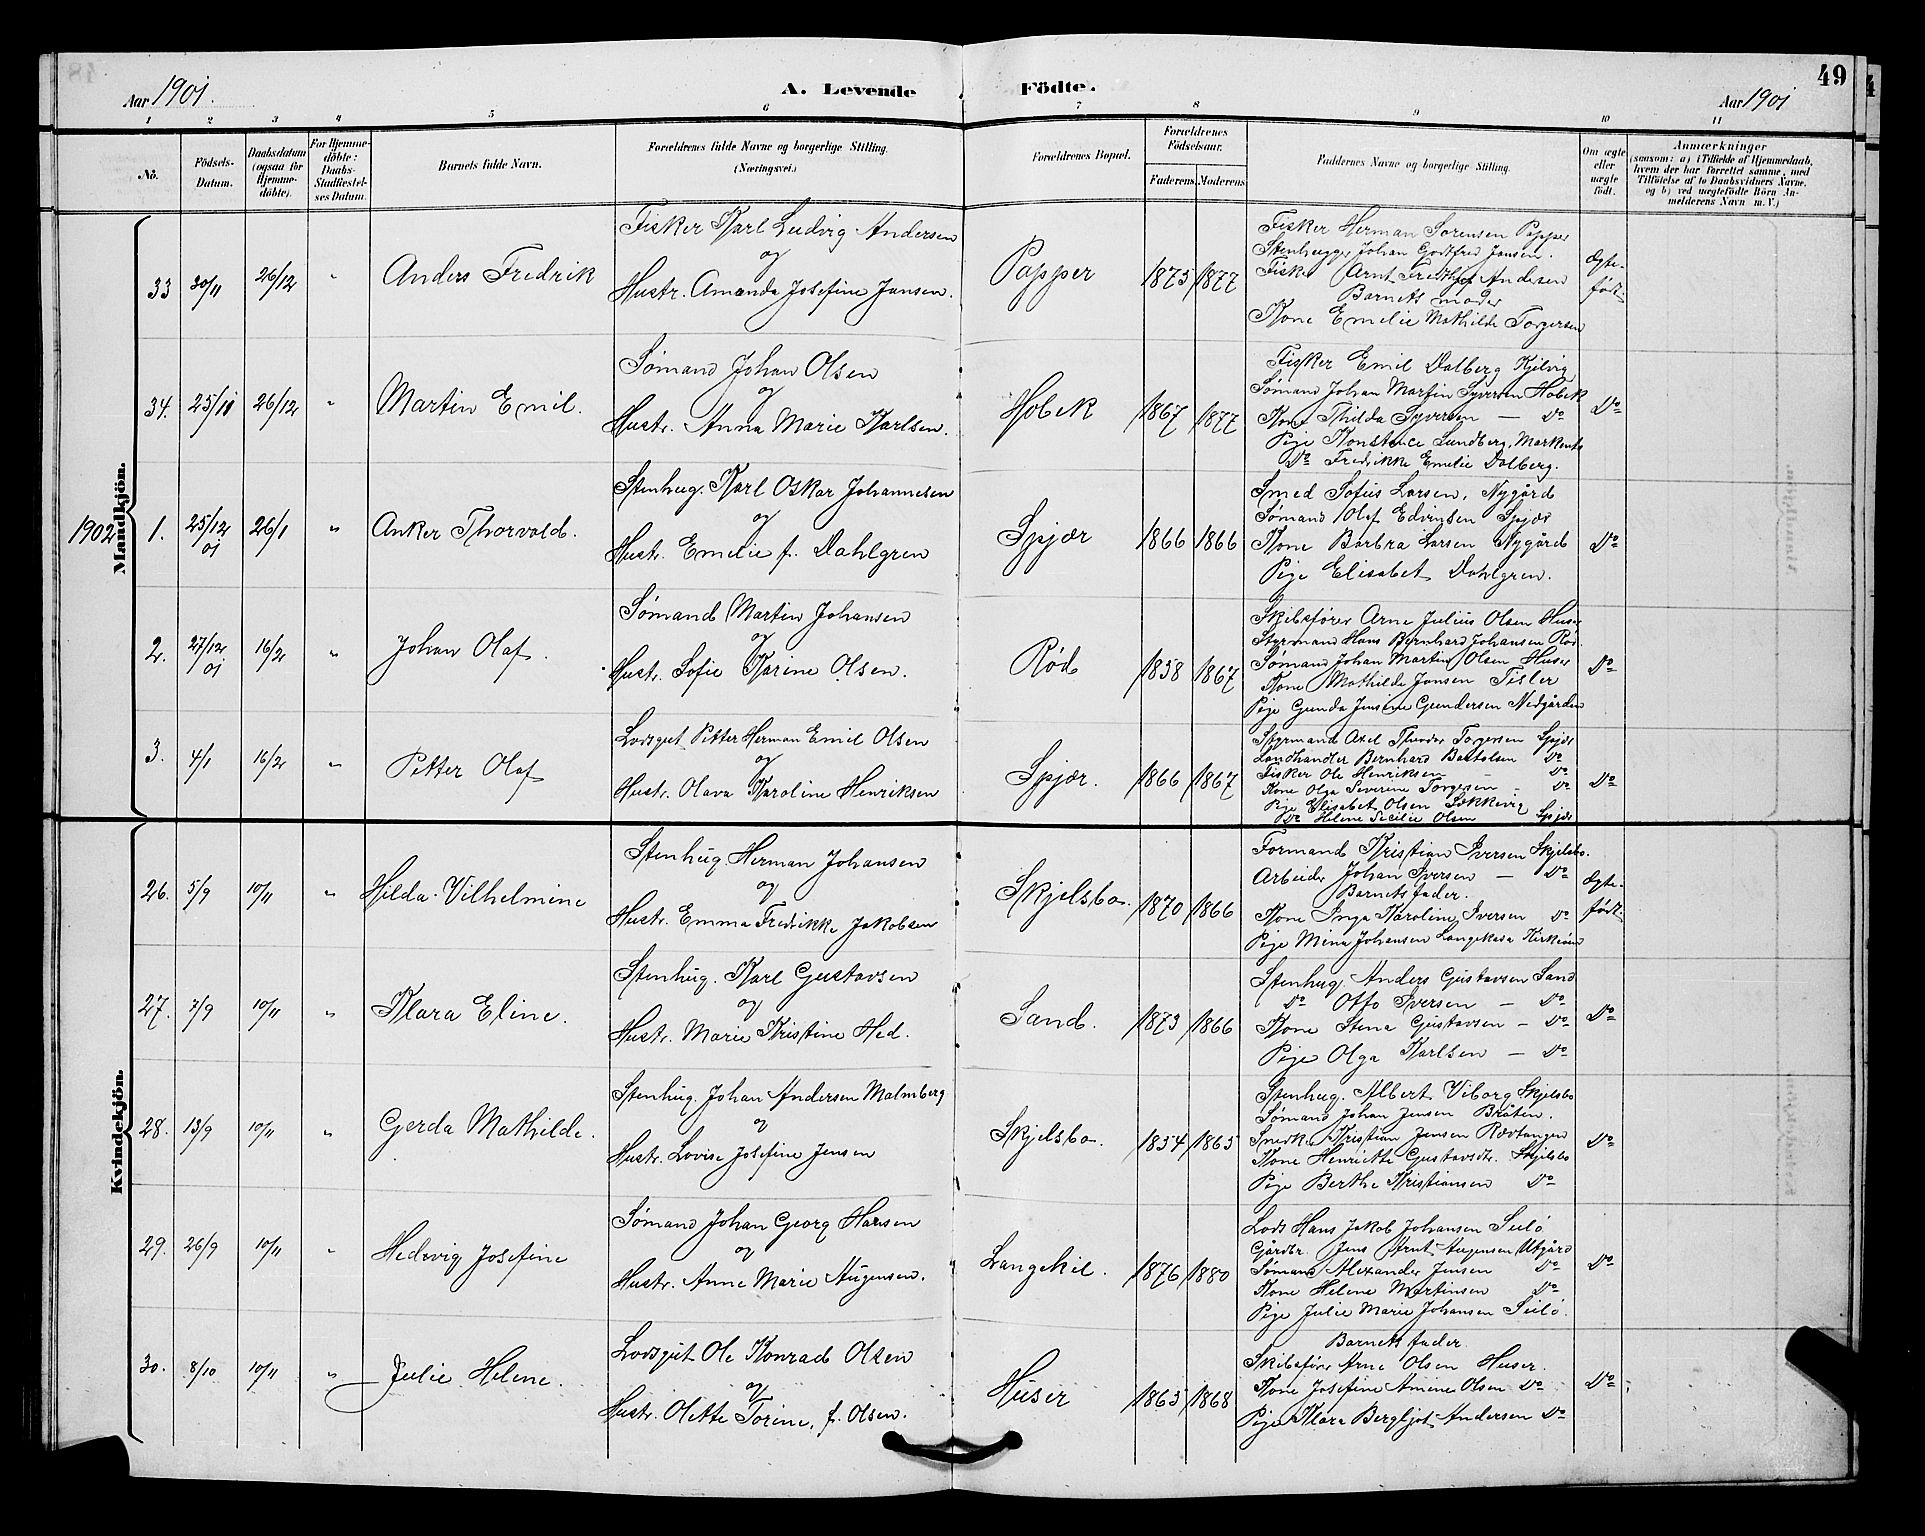 49
Aar 1901.
A. Levende Födte.
Aar 1901
1 2 3 4 5 6 7 8 9 10 11
No.
Födsels-Datum.
Daabsdatum (ogsaa for Hjemme-döbte).
For Hjemme-döbte: Daabs-Stadfæstel-ses Datum.
Barnets fulde Navn.
Forældrenes fulde Navne og borgerlige Stilling.
(Næringsvei.)
Forældrenes Bopæl.
Forældrenes Födselsaar.
Faderens. Moderens.
Faddernes Navne og borgerlige Stilling.
Om ægte eller uægte födt.
Anmærkninger
(saasom: a) i Tilfælde af Hjemmedaab,
hvem der har forrettet samme, med
Tilföielse af to Daabsvidners Navne,
og b) ved uægtefödte Börn An-
melderens Navn m. V.)
Mandkjön.
33 30/11 26/12 " Anders Fredrik
Fisker Karl Ludvig Andersen
og
Hustr. Amanda Josefine Jansen.
Papper 1875 1877
Fisker Herman Sorensen Papper
Stenhugg. Johan Godtfred Jansen.
Fisker Arnt Fredthjof Andersen
Barnets moder
Kone Emelie Mathilde Torgersen
Ægte-født
34. 25/11 26/12 " Martin Emil.
Sømand Johan Olsen
og
Hustr. Anna Marie Karlsen.
Hobek 1867 1877
Fisker Emil Dalberg Kjilvig
Sømand Johan Martin Syversen Hobek
Kone Thilda Syversen — Do
Pige Konstance Lundberg,
Do Fredrikke Emelie Dalberg.
Do
1902 1. 25/12 01 26/1 " Anker Thorvald.
Stenhug. Karl Oskar Johannesen
og
Hustr. Emelie f. Dahlgren
Spjær 1866 1866
Smed Sofus Larsen, Nygård
Sømand Olaf Edvinsen Spjær
Kone Barbra Larsen Nygård
Pige Elisabet Dahlgren.
Do
2. 27/12 01 16/2 " Johan Olaf.
Sømand Martin Johansen
og
Hustr. Sofie Karine Olsen.
Rød 1858 1867
Skibsfører Arne Julius Olsen Huser
Styrmand Hans Bernhard Johansen Rød.
Sømand Johan Martin Olsen Huser
Kone Mathilde Jansen Tisler
Pige Gunda Jensine Gundersen Nedgården
Do
3. 4/1 16/2 " Petter Olaf
Lodsgut Petter Herman Emil Olsen
og
Hustr. Olava Karoline Henriksen
Spjær. 1866 1867
Styrmand Axel Theodor Torgersen Spjær
Landhandler Bernhard Bertolsen Do
Fisker Ole Henriksen — Do
Kone Olga Severine Torgersen - Do
Pige Elisabet Olsen Løkkevig
Do Helene Secilie Olsen Spjær
Do
Kvindekjön.
26. 5/9 10/11 " Hilda Vilhelmine
Stenhug. Herman Johansen
og
Hustr. Emma Fredrikke Jakobsen
Skjelsbo. 1870 1866
Formand Kristian Iversen Skjelsbo.
Arbeider Johan Iversen — Do
Barnets fader.
Kone Inga Karoline Iversen Do
Pige Mina Johansen Langekasa Kirkeøen
Ægte-født
27. 7/9 10/11 " Klara Eline.
Stenhug. Karl Gustavsen
og
Hustr. Marie Kristine Hed.
Sand. 1873 1866
Stenhug Anders Gustavsen Sand
Do Otto Iversen — Do
Kone Stena Gustavsen — Do
Pige Olga Karlsen — Do
Do
28. 13/9 10/11 " Gerda Mathilde.
Stenhug. Johan Andersen Malmberg
og
Hustr. Lovise Josefine Jensen
Skjelsbo. 1854 1865
Stenhug. Albert Viborg Skjelsbo
Sømand Johan Jensen Bråten.
Snedk. Kristian Jensen Rødtangen
Kone Henriette Gustavsdtr. Skjelsbo
Pige Berthe Kristiansen Do
Do
29. 26/9 10/11 " Hedevig Josefine
Sømand Johan Georg Hansen
og
Hustr. Anne Marie Augensen.
Langekil. 1876 1880
Lods Hans Jakob Johansen Seilø
Gårdbr. Jens Arnt Augensen Utgård
Sømand Alexander Jensen Do
Kone Helene Martinsen Do
Pige Julie Marie Johansen Seilø.
Do
30. 8/10 10/11 " Julie Helene.
Lodsgut Ole Konrad Olsen
og
Hustr. Olette Torine, f. Olsen.
Huser 1865 1868
Barnets fader.
Skibsfører Arne Olsen Huser.
Kone Josefine Amine Olsen Do
Pige Klara Bergljot Andersen Do
Do